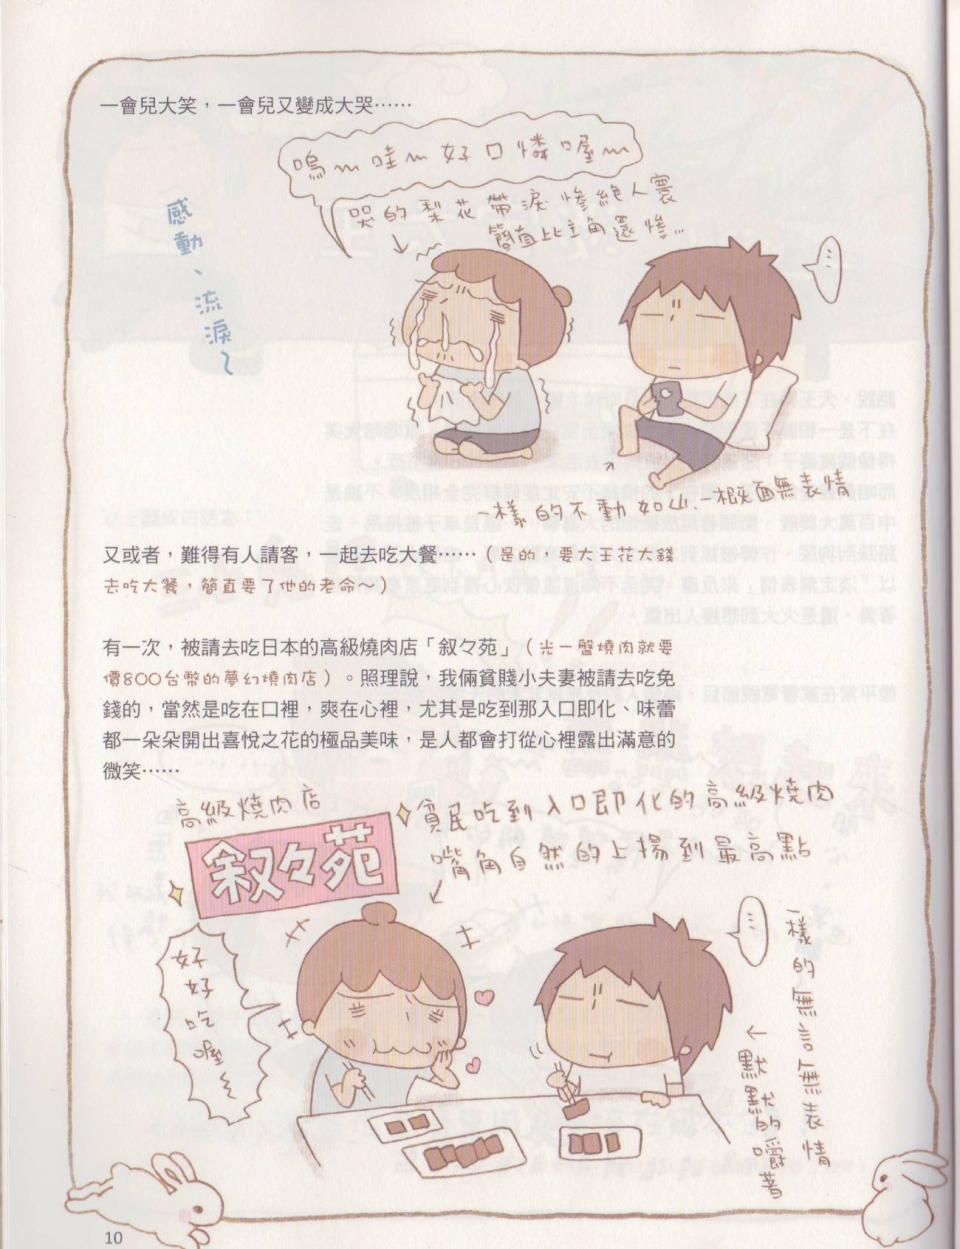 一會兒大笑，一會兒又變成大哭……
嗚～哇～好口憐喔～
哭的梨花帶淚慘絕人寰
簡直比主角還慘…
感動、流淚～
…
一樣的不動如山.一樣面無表情
又或者，難得有人請客，一起去吃大餐……（是的，要大王花大錢
去吃大餐，簡直要了他的老命～）
有一次，被請去吃日本的高級燒肉店「叙々苑」（光一盤燒肉就要
價800台幣的夢幻燒肉店）。照理說，我倆貧賤小夫妻被請去吃免
錢的，當然是吃在口裡，爽在心裡，尤其是吃到那入口即化、味蕾
都一朵朵開出喜悅之花的極品美味，是人都會打從心裡露出滿意的
微笑……
高級燒肉店
叙々苑
貧民吃到入口即化的高級燒肉
嘴角自然的上揚到最高點
好好吃喔～
…
一樣的無言無表情
←默默的嚼著
10